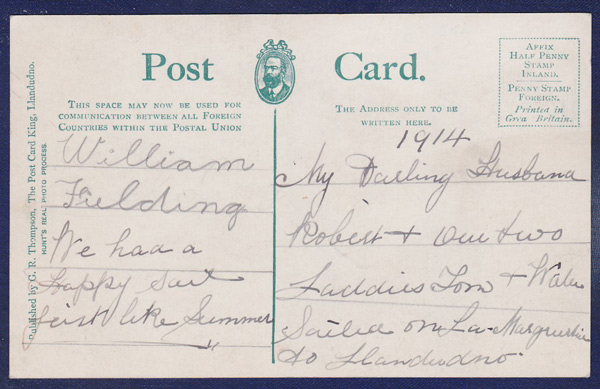 Post Card.
AFFIX
HALF PENNY
STAMP
INLAND.
PENNY STAMP
FOREIGN.
Printed in
Great Britain.
THIS SPACE MAY NOW BE USED FOR
COMMUNICATION BETWEEN ALL FOREIGN
COUNTRIES WITHIN THE POSTAL UNION
THE ADDRESS ONLY TO BE
WRITTEN HERE.
Published by G. R. Thompson, The Post Card King, Llandudno.
HUNT'S REAL PHOTO PROCESS.
William
Fielding
We had a
happy
like Summer
1914
My Darling Husband
Robert + our two
Laddies Tom +
Sailed on La Marguerite
to Llandudno.